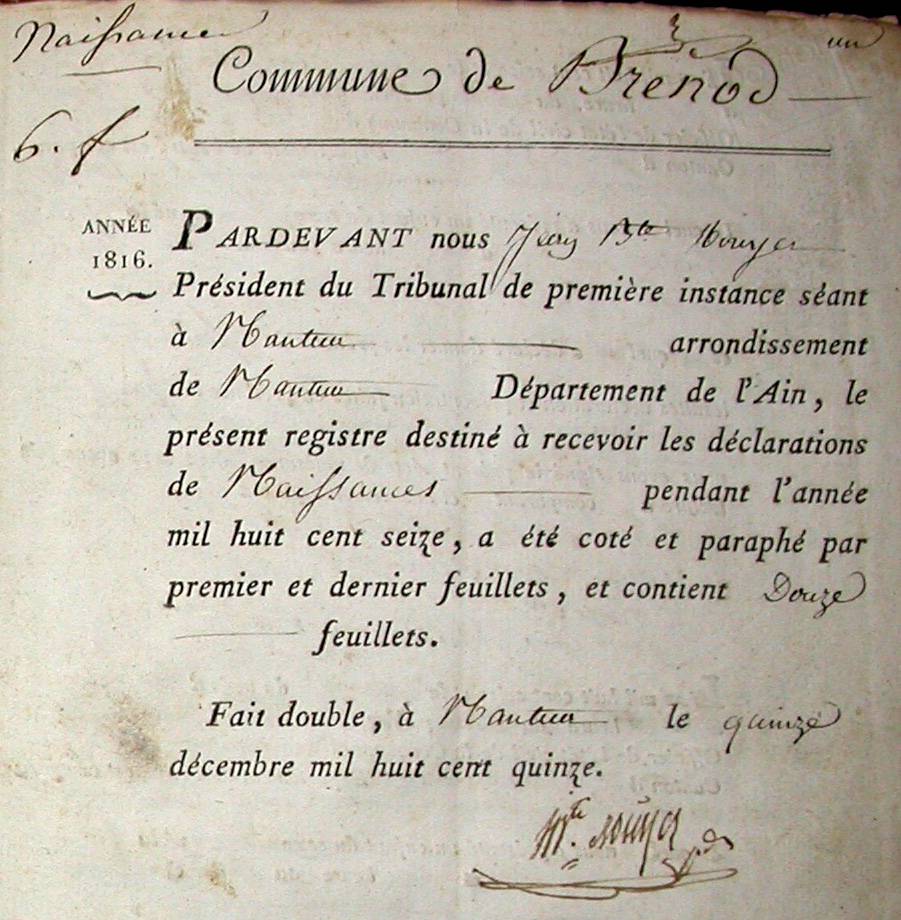 Naissance
un
Commune de Brénod
6. f
ANNÉE
1816.
PARDEVANT nous Jean Bte
Président du Tribunal de première instance séant
à Nantua arrondissement
de Nantua Département de l'Ain, le
présent registre destiné à recevoir les déclarations
de Naissances pendant l'année
mil huit cent seize, a été coté et paraphé par
premier et dernier feuillets, et contient Douze
feuillets.
Fait double, à Nantua le quinze
décembre mil huit cent quinze.